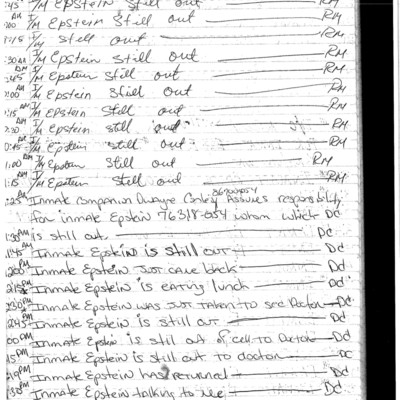 :45 AM I/M EPSTEIN Still out RM
:00 AM I/M Epstein Still out RM
1:15 I/M still out RM
:30 AM I/M Epstein still out RM
:45 AM I/M Epstein still out RM
:00 AM I/M Epstein Still out RM
:15 AM I/M Epstein still out RM
2:30 AM I/M Epstein still out RM
I/M Epstein still out RM
1:00 AM I/M Epstein Still out RM
1:15 AM I/M Epstein Still out RM
:25 AM Inmate Companion Dwayne Assumes responsibility
for inmate Epstein 76318-054 whom which DC
:38 AM is still out DC
1:45 AM Inmate Epstein is still out DC
:00 PM Inmate Epstein Just came back DC
2:15 PM Inmate Epstein is eating lunch DC
:30 PM Inmate Epstein was Just taken to see Doctor DC
:245 PM Inmate Epstein is still out DC
:00 PM Inmate Epstein is still out of cell to Doctor DC
:15 PM Inmate Epstein is still out to doctor DC
:19 PM Inmate Epstein has returned DC
:30 PM Inmate Epstein talking to me DC